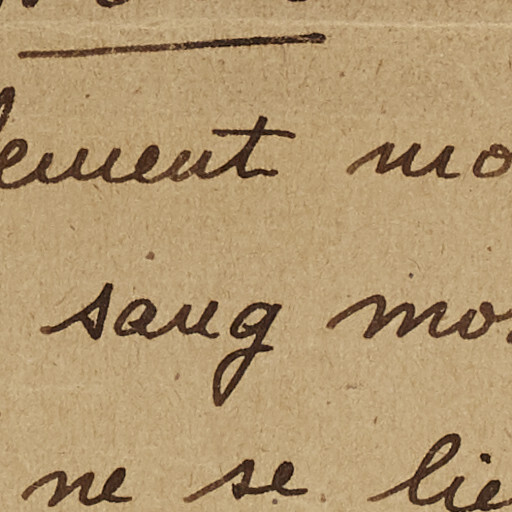 lement mo
sang mo
ne se lie